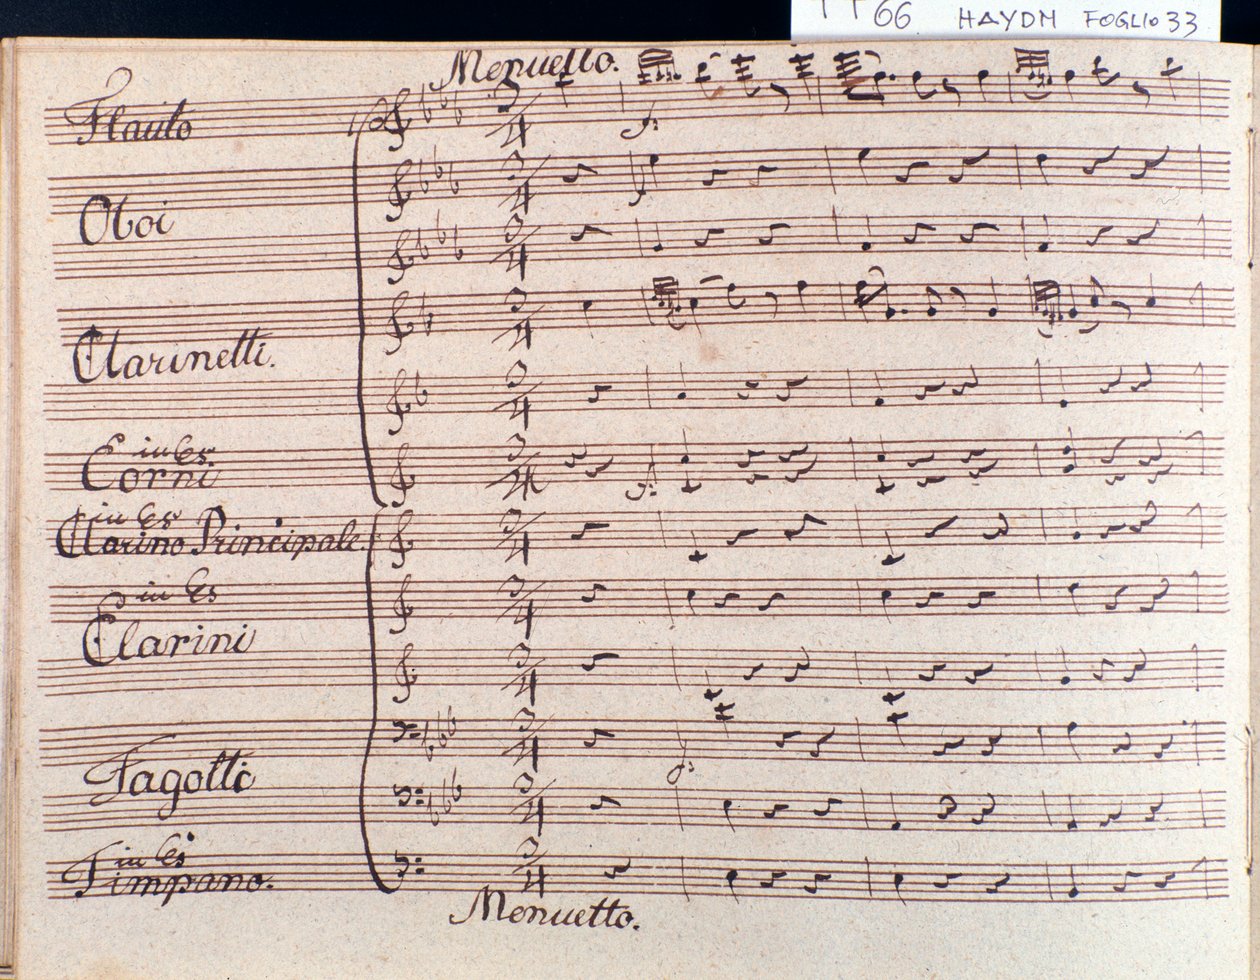 TT66 HAYDN FOGLIO 33
Menuetto.
Flauto
Oboi
Clarinetti.
in Es
Corni
in Es
Clarino Principale.
in Es
Clarini
Fagotti
in Es
Timpano.
Menuetto.